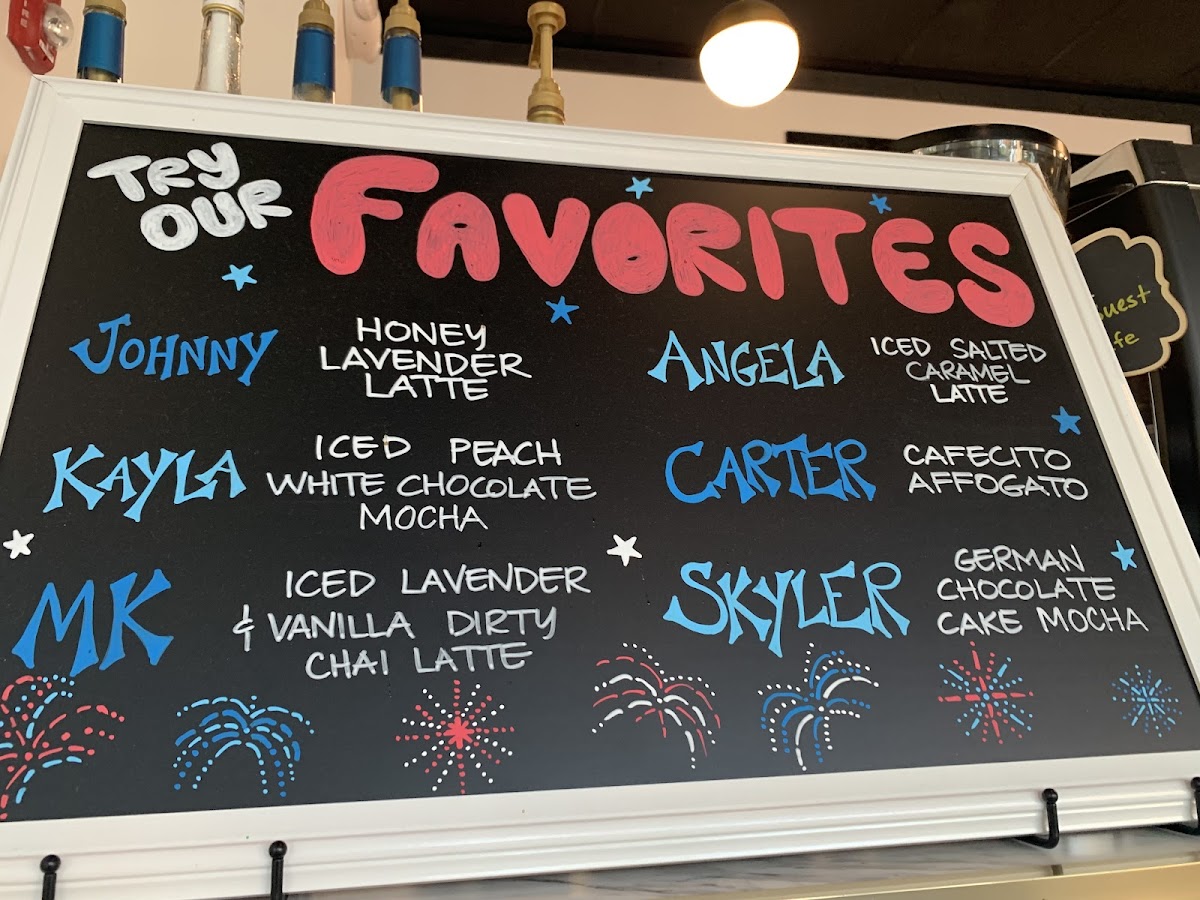 TRY
OUR
FAVORITES
JOHNNY
HONEY
LAVENDER
LATTE
KAYLA
ICED PEACH
WHITE CHOCOLATE
MOCHA
MK
ICED LAVENDER
& VANILLA DIRTY
CHAI LATTE
ANGELA
ICED SALTED
CARAMEL
LATTE
CARTER
CAFECITO
AFFOGATO
SKYLER
GERMAN
CHOCOLATE
CAKE MOCHA